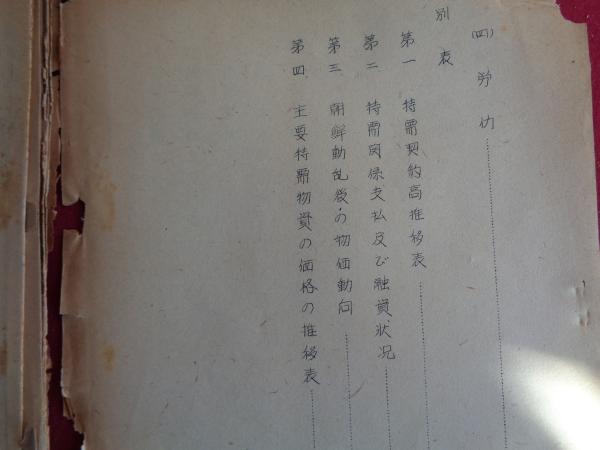 (四) 労仂
別表
第一 特需契約高推移表
第二 特需関係支払及び融資状況
第三 朝鮮動乱後の物価動向
第四 主要特需物資の価格の推移表